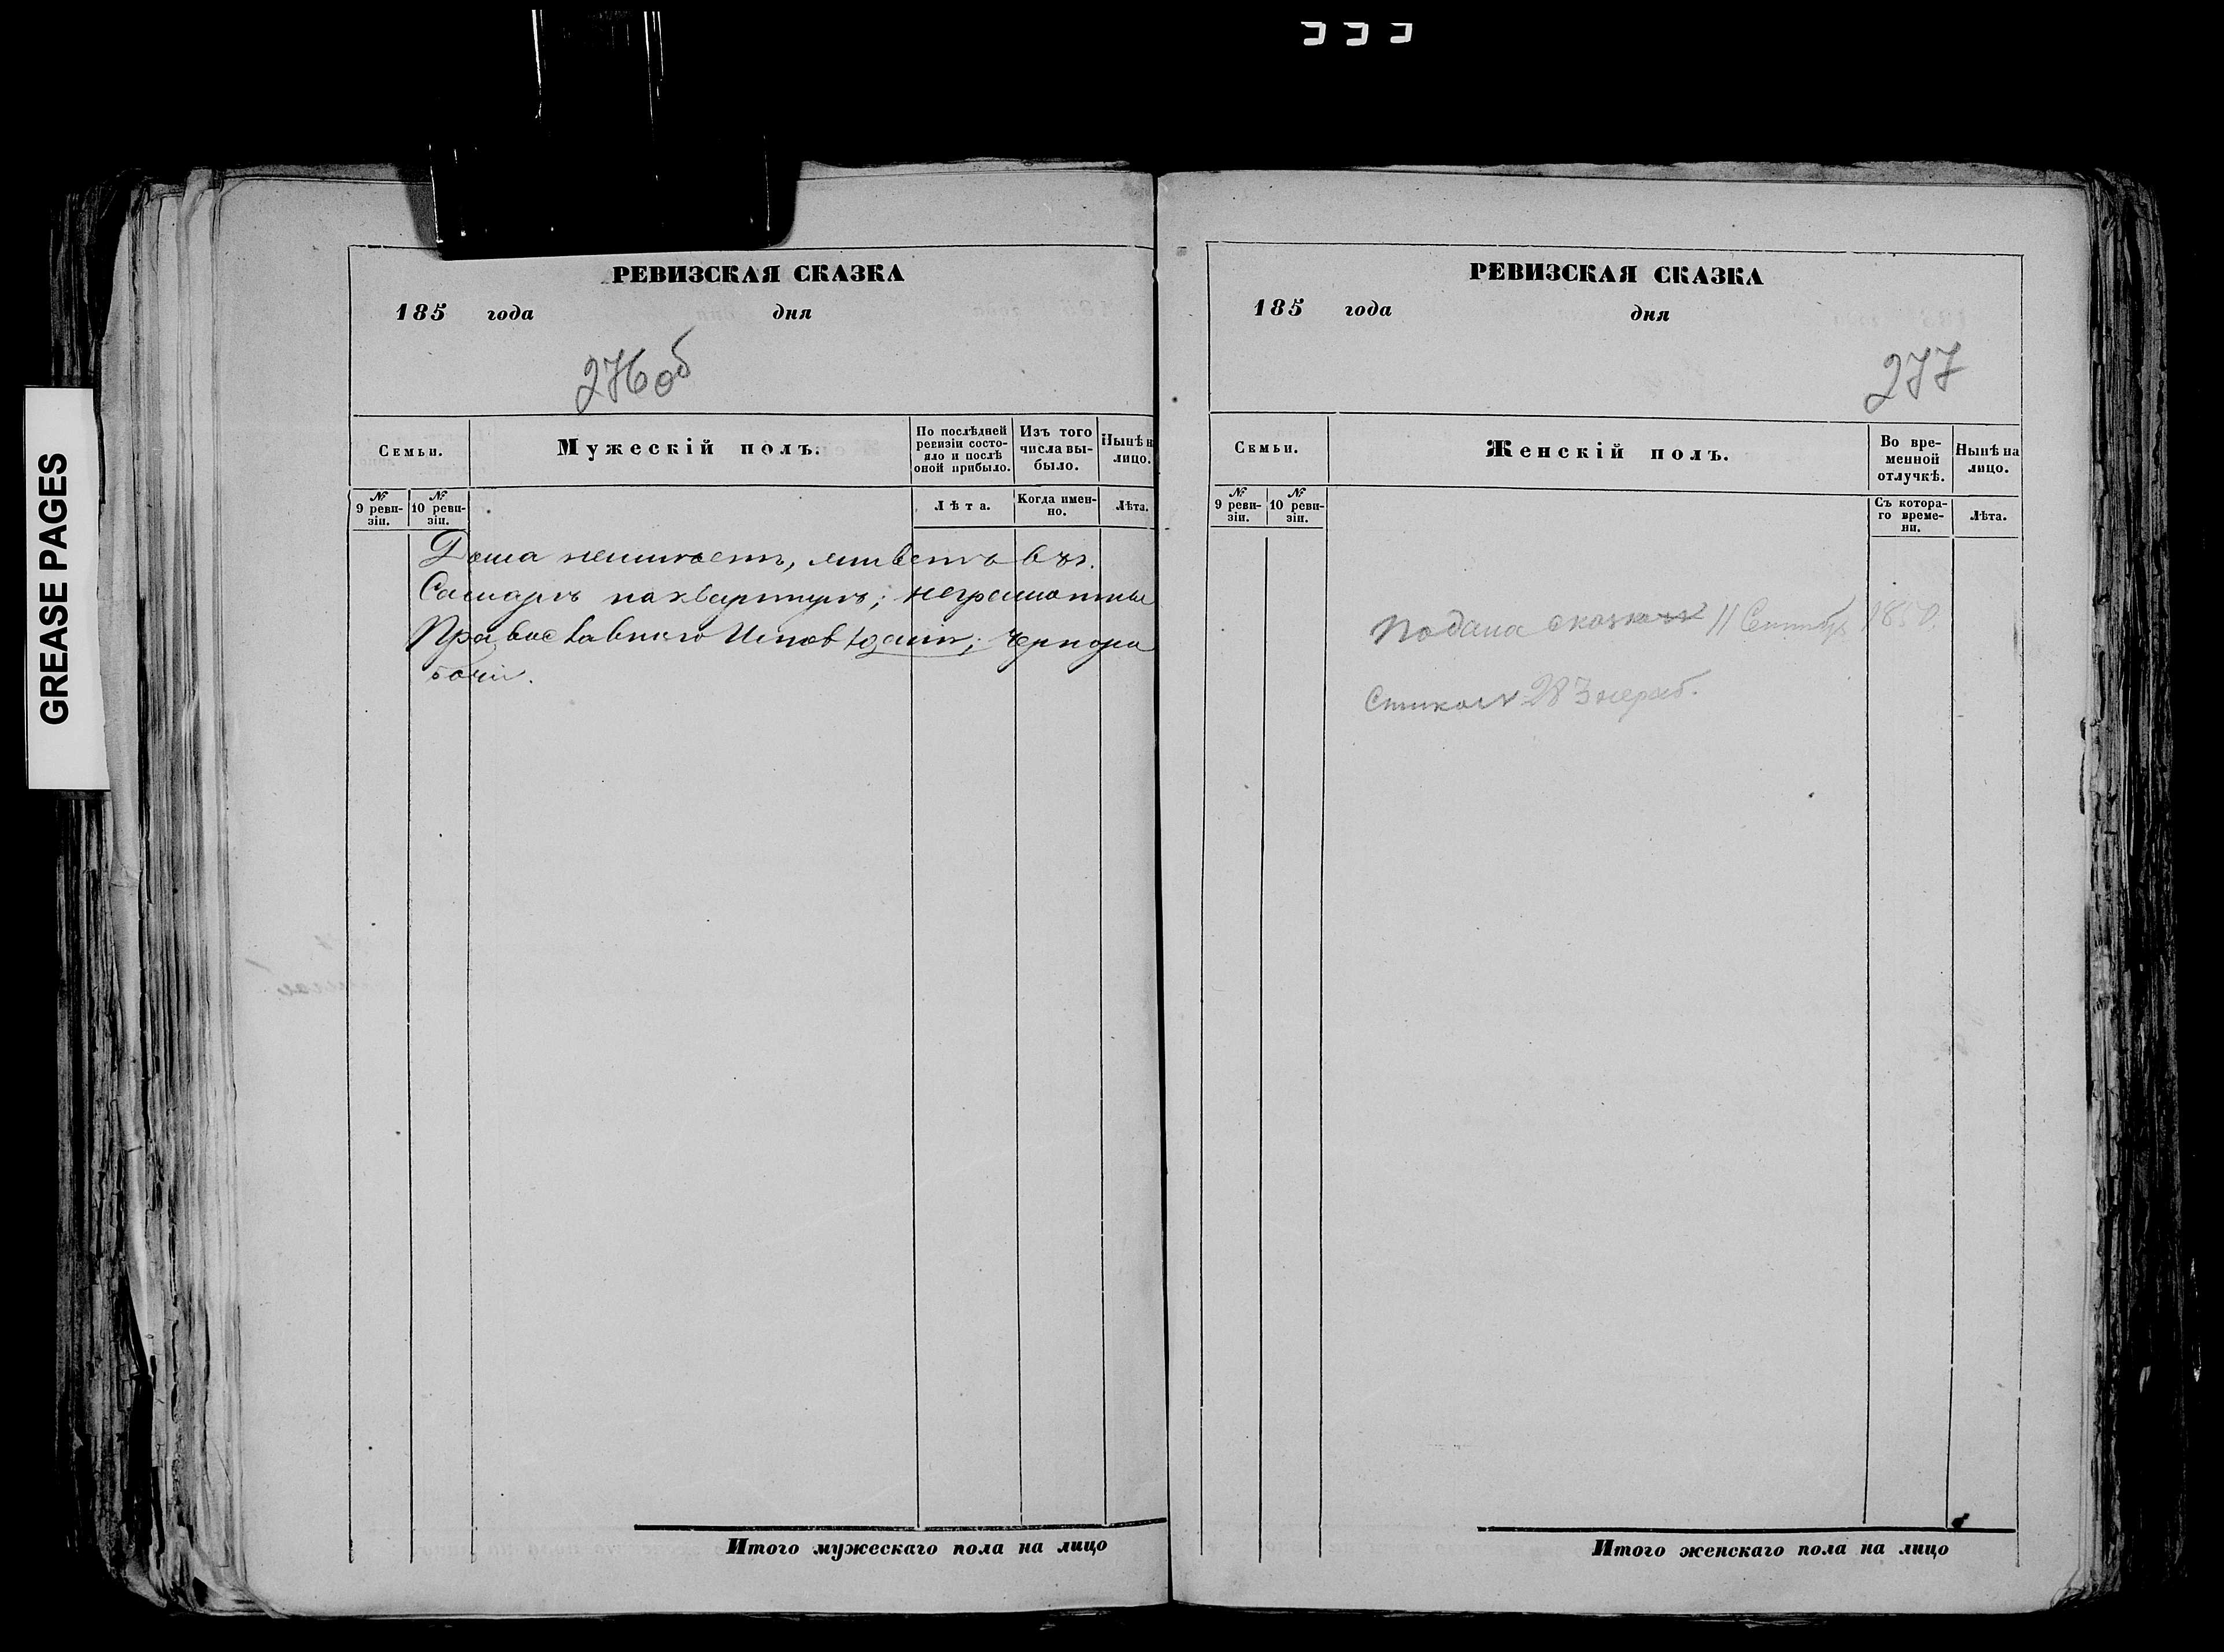 GREASE PAGES
РЕВИЗСКАЯ СКАЗКА
185 года дня
276 об
Семьи.
Мужескій полъ.
По послѣдней ревизіи состояло и послѣ оной прибыло.
Изъ того числа выбыло.
Нынѣ н лицо.
№ 9 ревизіи.
№ 10 ревизіи.
Лѣта.
Когда именно.
Лѣта.
Дома неимѣетъ, живетъ въ г.
Самарѣ на квартирѣ; неграмотны
Православнаго Исповѣданія; Чернора
бочій.
Итого мужескаго пола на лицо
РЕВИЗСКАЯ СКАЗКА
185 года дня
277
Семьи.
Женскій полъ.
Во временной отлучкѣ.
Нынѣ на лицо.
№ 9 ревизіи.
№ 10 ревизіи.
Съ котораго времени.
Лѣта.
Подана сказка 11 Сентяб.
283
Итого женскаго пола на лицо